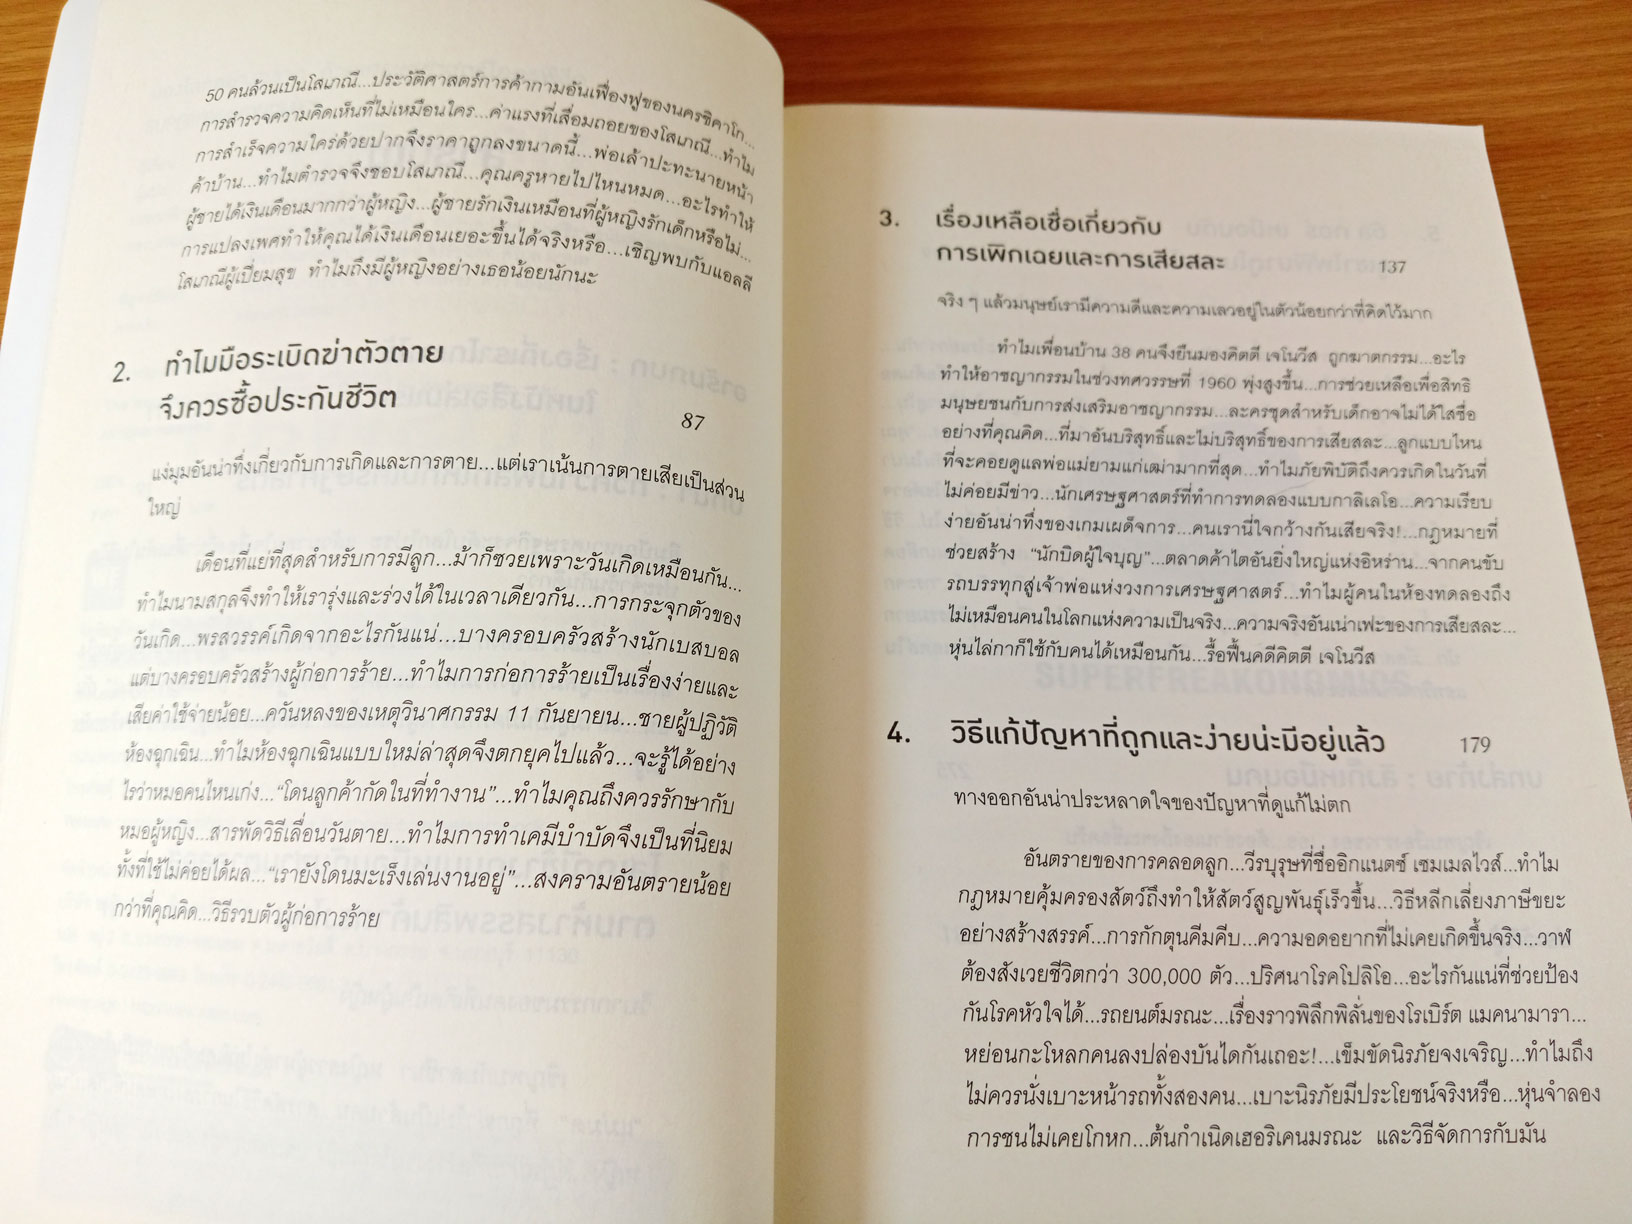 50 คนล้วนเป็นโสเภณี...ประวัติศาสตร์การค้ากามอันเฟื่องฟูของนครชิคาโก...
การสำรวจความคิดเห็นที่ไม่เหมือนใคร...ค่าแรงที่เสื่อมถอยของโสเภณี...ทำไม
การสำเร็จความใคร่ด้วยปากจึงราคาถูกลงขนาดนี้...พ่อเล้าปะทะนายหน้า
ค้าบ้าน...ทำไมตำรวจจึงชอบโสเภณี...คุณครูหายไปไหนหมด...อะไรทำให้
ผู้ชายได้เงินเดือนมากกว่าผู้หญิง...ผู้ชายรักเงินเหมือนที่ผู้หญิงรักเด็กหรือไม่...
การแปลงเพศทำให้คุณได้เงินเดือนเยอะขึ้นได้จริงหรือ...เชิญพบกับแอลลี
โสเภณีผู้เปี่ยมสุข ทำไมถึงมีผู้หญิงอย่างเธอน้อยนักนะ
2. ทำไมมือระเบิดฆ่าตัวตาย
จึงควรซื้อประกันชีวิต 87
แง่มุมอันน่าทึ่งเกี่ยวกับการเกิดและการตาย...แต่เราเน้นการตายเสียเป็นส่วน
ใหญ่
เดือนที่แย่ที่สุดสำหรับการมีลูก...ม้าก็ซวยเพราะวันเกิดเหมือนกัน...
ทำไมนามสกุลจึงทำให้เรารุ่งและร่วงได้ในเวลาเดียวกัน...การกระจุกตัวของ
วันเกิด...พรสวรรค์เกิดจากอะไรกันแน่...บางครอบครัวสร้างนักเบสบอล
แต่บางครอบครัวสร้างผู้ก่อการร้าย...ทำไมการก่อการร้ายเป็นเรื่องง่ายและ
เสียค่าใช้จ่ายน้อย...ควันหลงของเหตุวินาศกรรม 11 กันยายน...ชายผู้ปฏิวัติ
ห้องฉุกเฉิน...ทำไมห้องฉุกเฉินแบบใหม่ล่าสุดจึงตกยุคไปแล้ว...จะรู้ได้อย่าง
ไรว่าหมอคนไหนเก่ง...“โดนลูกค้ากัดในที่ทำงาน”...ทำไมคุณถึงควรรักษากับ
หมอผู้หญิง...สารพัดวิธีเลื่อนวันตาย...ทำไมการทำเคมีบำบัดจึงเป็นที่นิยม
ทั้งที่ใช้ไม่ค่อยได้ผล...“เรายังโดนมะเร็งเล่นงานอยู่”...สงครามอันตรายน้อย
กว่าที่คุณคิด...วิธีรวบตัวผู้ก่อการร้าย
3. เรื่องเหลือเชื่อเกี่ยวกับ
การเพิกเฉยและการเสียสละ 137
จริง ๆ แล้วมนุษย์เรามีความดีและความเลวอยู่ในตัวน้อยกว่าที่คิดไว้มาก
ทำไมเพื่อนบ้าน 38 คนจึงยืนมองคิตตี เจโนวีส ถูกฆาตกรรม...อะไร
ทำให้อาชญากรรมในช่วงทศวรรษที่ 1960 พุ่งสูงขึ้น...การช่วยเหลือเพื่อสิทธิ
มนุษยชนกับการส่งเสริมอาชญากรรม...ละครชุดสำหรับเด็กอาจไม่ได้ใสซื่อ
อย่างที่คุณคิด...ที่มาอันบริสุทธิ์และไม่บริสุทธิ์ของการเสียสละ...ลูกแบบไหน
ที่จะคอยดูแลพ่อแม่ยามแก่เฒ่ามากที่สุด...ทำไมภัยพิบัติถึงควรเกิดในวันที่
ไม่ค่อยมีข่าว...นักเศรษฐศาสตร์ที่ทำการทดลองแบบกาลิเลโอ...ความเรียบ
ง่ายอันน่าทึ่งของเกมเผด็จการ...คนเรานี่ใจกว้างกันเสียจริง!...กฎหมายที่
ช่วยสร้าง “นักบิดผู้ใจบุญ”...ตลาดค้าไตอันยิ่งใหญ่แห่งอิหร่าน...จากคนขับ
รถบรรทุกสู่เจ้าพ่อแห่งวงการเศรษฐศาสตร์...ทำไมผู้คนในห้องทดลองถึง
ไม่เหมือนคนในโลกแห่งความเป็นจริง...ความจริงอันเน่าเฟะของการเสียสละ...
หุ่นไล่กาก็ใช้กับคนได้เหมือนกัน...รื้อฟื้นคดีคิตตี เจโนวีส
4. วิธีแก้ปัญหาที่ถูกและง่ายน่ะมีอยู่แล้ว 179
ทางออกอันน่าประหลาดใจของปัญหาที่ดูแก้ไม่ตก
อันตรายของการคลอดลูก...วีรบุรุษที่ชื่ออิกแนตซ์ เซมเมลไวส์...ทำไม
กฎหมายคุ้มครองสัตว์ถึงทำให้สัตว์สูญพันธุ์เร็วขึ้น...วิธีหลีกเลี่ยงภาษีขยะ
อย่างสร้างสรรค์...การกักตุนคีมคีบ...ความอดอยากที่ไม่เคยเกิดขึ้นจริง...วาฬ
ต้องสังเวยชีวิตกว่า 300,000 ตัว...ปริศนาโรคโปลิโอ...อะไรกันแน่ที่ช่วยป้อง
กันโรคหัวใจได้...รถยนต์มรณะ...เรื่องราวพิลึกพิลั่นของโรเบิร์ต แมคนามารา...
หย่อนกะโหลกคนลงปล่องบันไดกันเถอะ!...เข็มขัดนิรภัยจงเจริญ...ทำไมถึง
ไม่ควรนั่งเบาะหน้ารถทั้งสองคน...เบาะนิรภัยมีประโยชน์จริงหรือ...หุ่นจำลอง
การชนไม่เคยโกหก...ต้นกำเนิดเฮอริเคนมรณะ และวิธีจัดการกับมัน